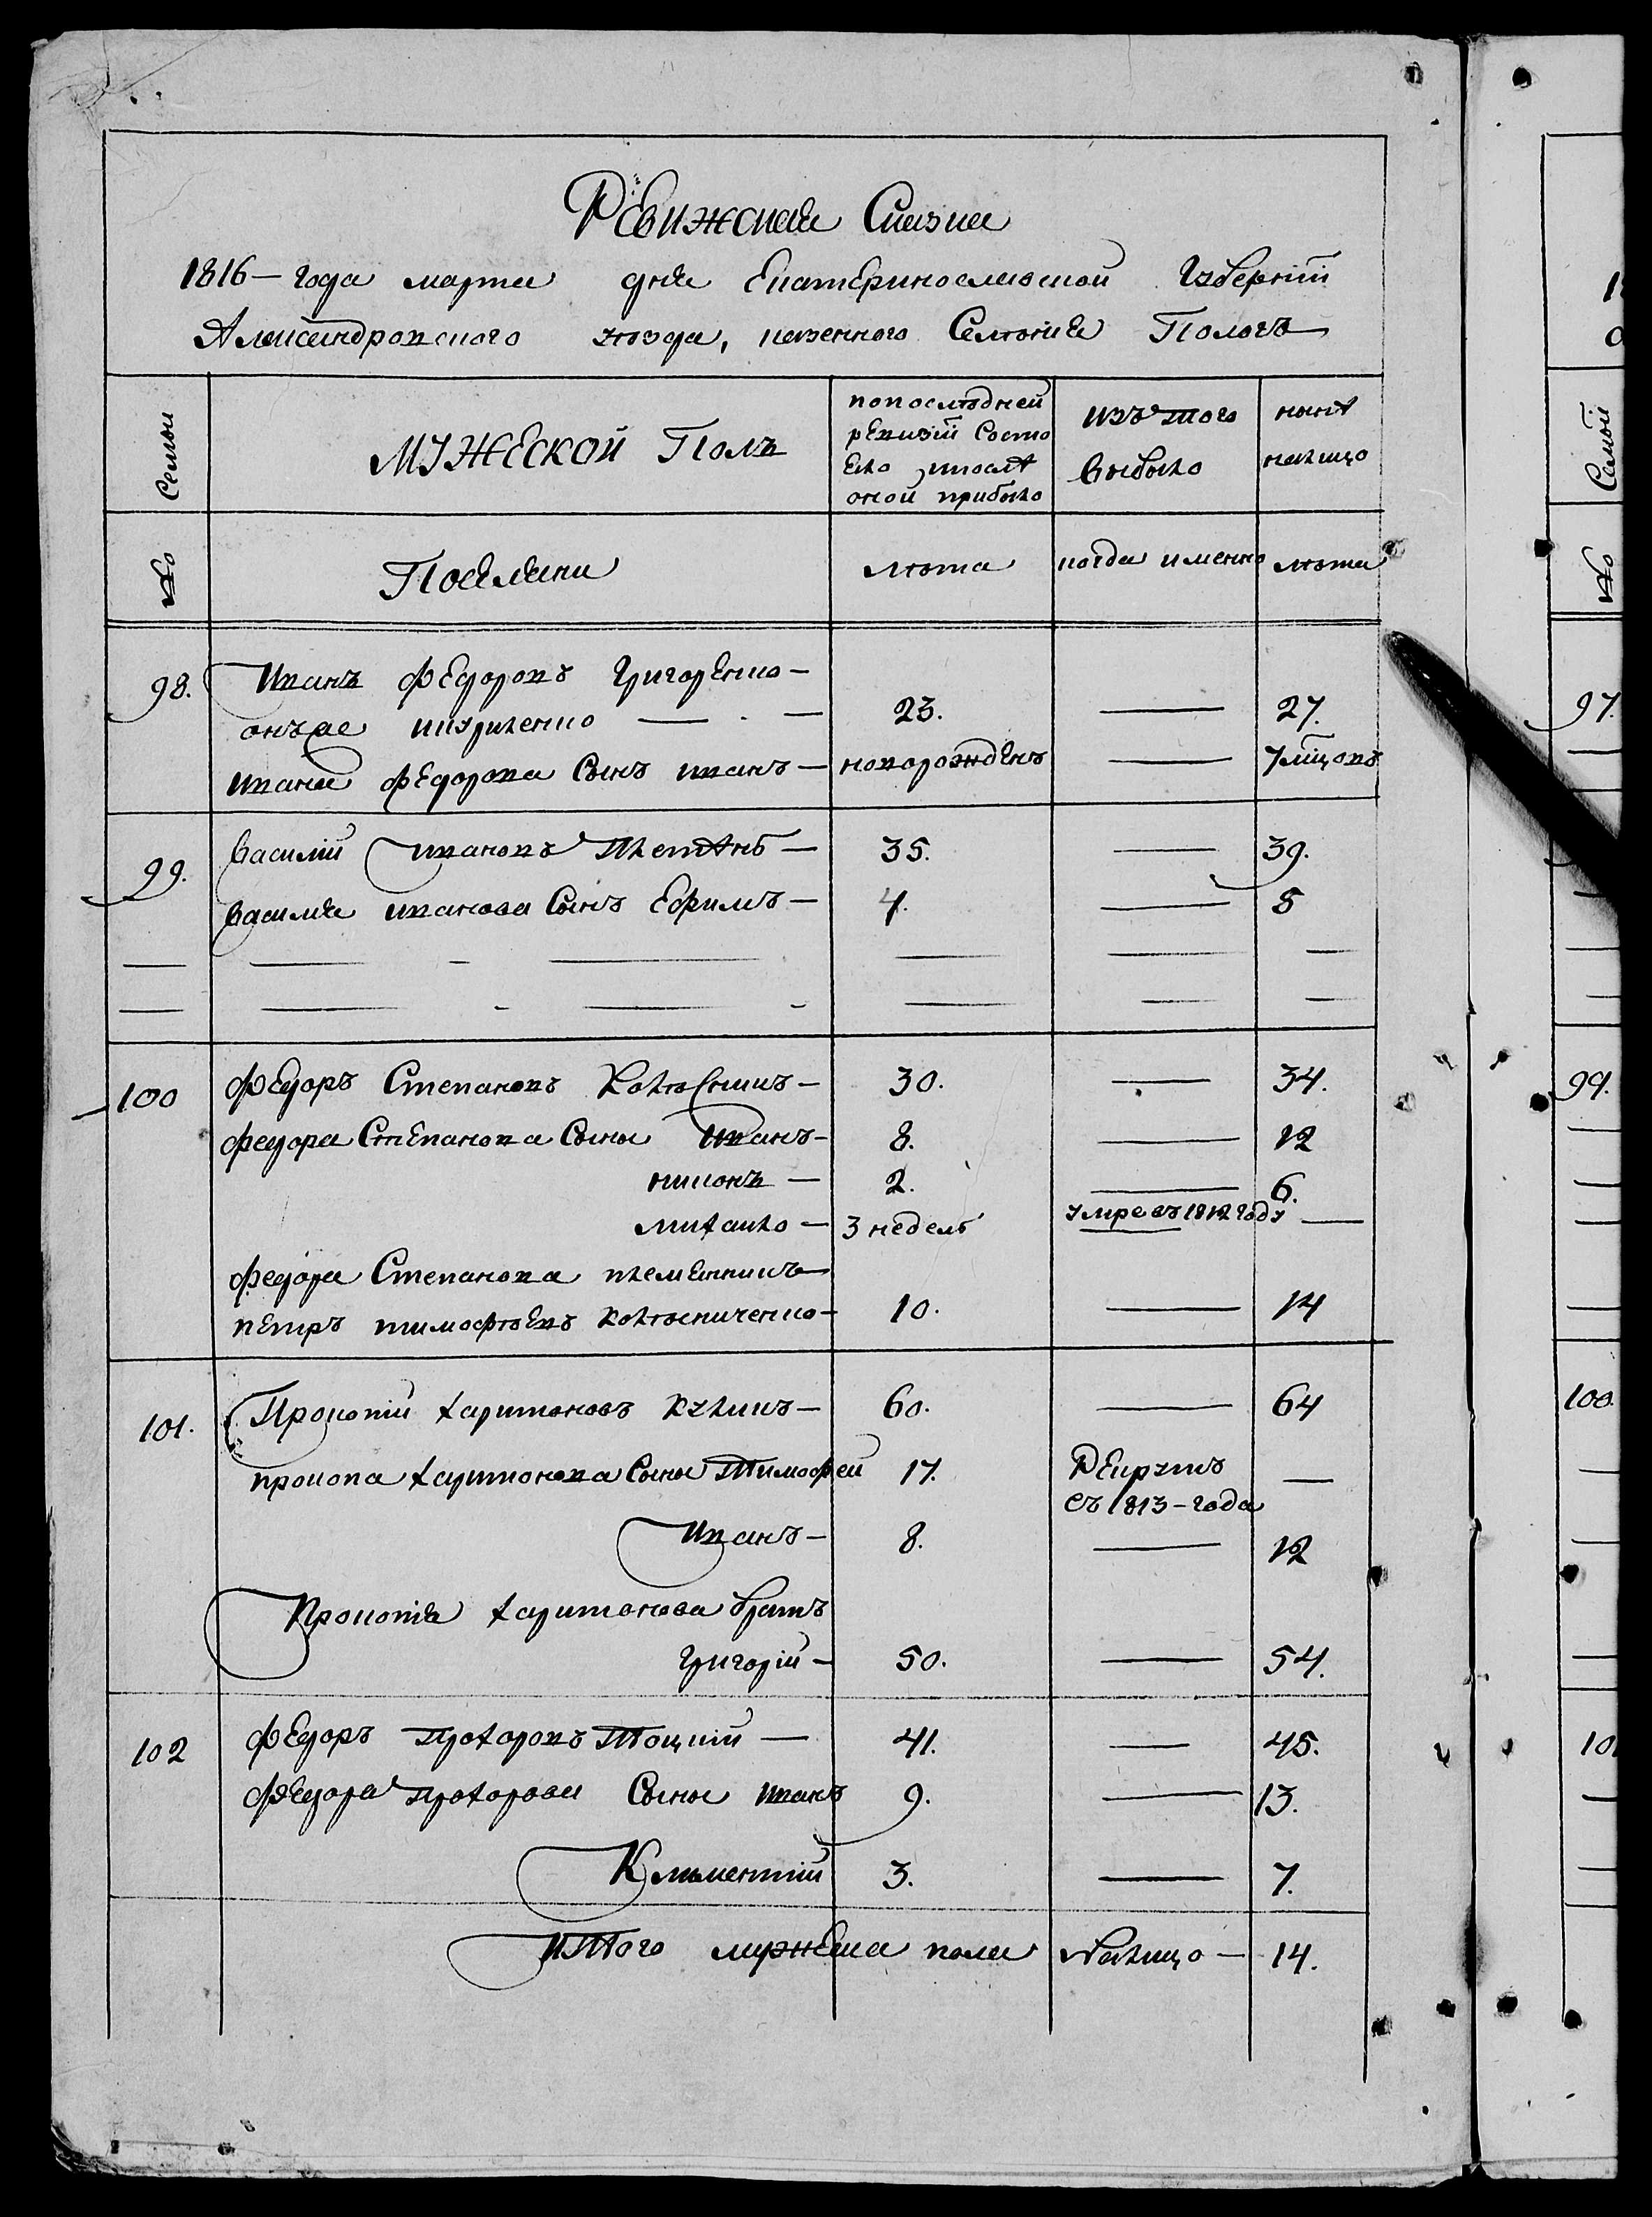 Ревижская Сказка
1816 — года марта дня Екатеринославской Губернїи
Александровского уѣзда, казенного Селенїя Пологъ
Семьи
МУЖЕСКОЙ Полъ
попослѣдней
ревизїи Состо
яло ипослѣ
оной прибыло
изъ того
выбыло
нынѣ
налицо
№
Поселяни
лѣта
когда именно
лѣта
98.
Иванъ Федоровъ Григоренко —
онъже — . —
23.
—
27.
Ивана Федорова Сынъ иванъ —
новорожденъ
—
7 мцовъ
99.
Василїй ивановъ —
35.
—
39.
Василия иванова Сынъ Ефимъ —
4.
—
8
100
Федоръ Степановъ Колѣсникъ —
30.
—
34.
Федора Степанова Сыны иванъ —
8.
—
12
никонъ —
2.
—
6.
михайло —
3 недель
умре въ 1812 году
—
Федора Степанова племенникъ —
петръ тимофѣевъ Колѣсниченко —
10.
—
14
101.
Прокопїй харитоновъ Куликъ —
60.
—
64
прокопа харитонова Сыны Тимофей
17.
Рекрутъ
съ 1813 — года
—
Иванъ —
8.
—
12
Прокопїя харитонова братъ
Григорїй —
50.
—
54.
102
Федоръ Прохоровъ Тоцкїй —
41.
—
45.
Федора Прохорова Сыны иванъ
9.
—
13.
Клементїй
3.
—
7.
Итого мужеска пола налицо — 14.
Семьи
№
97.
99.
100.
10